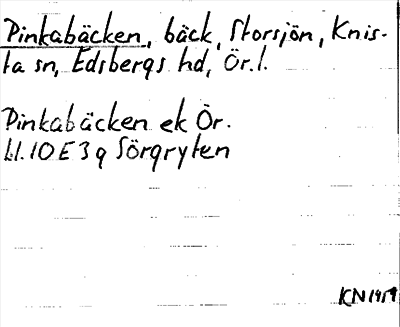 Pinkabäcken, bäck, Storsjön, Knis-
ta sn, Edsbergs hd, Ör.l.
Pinkabäcken ek Ör.
bl. 10 E 3 g Sörgryten